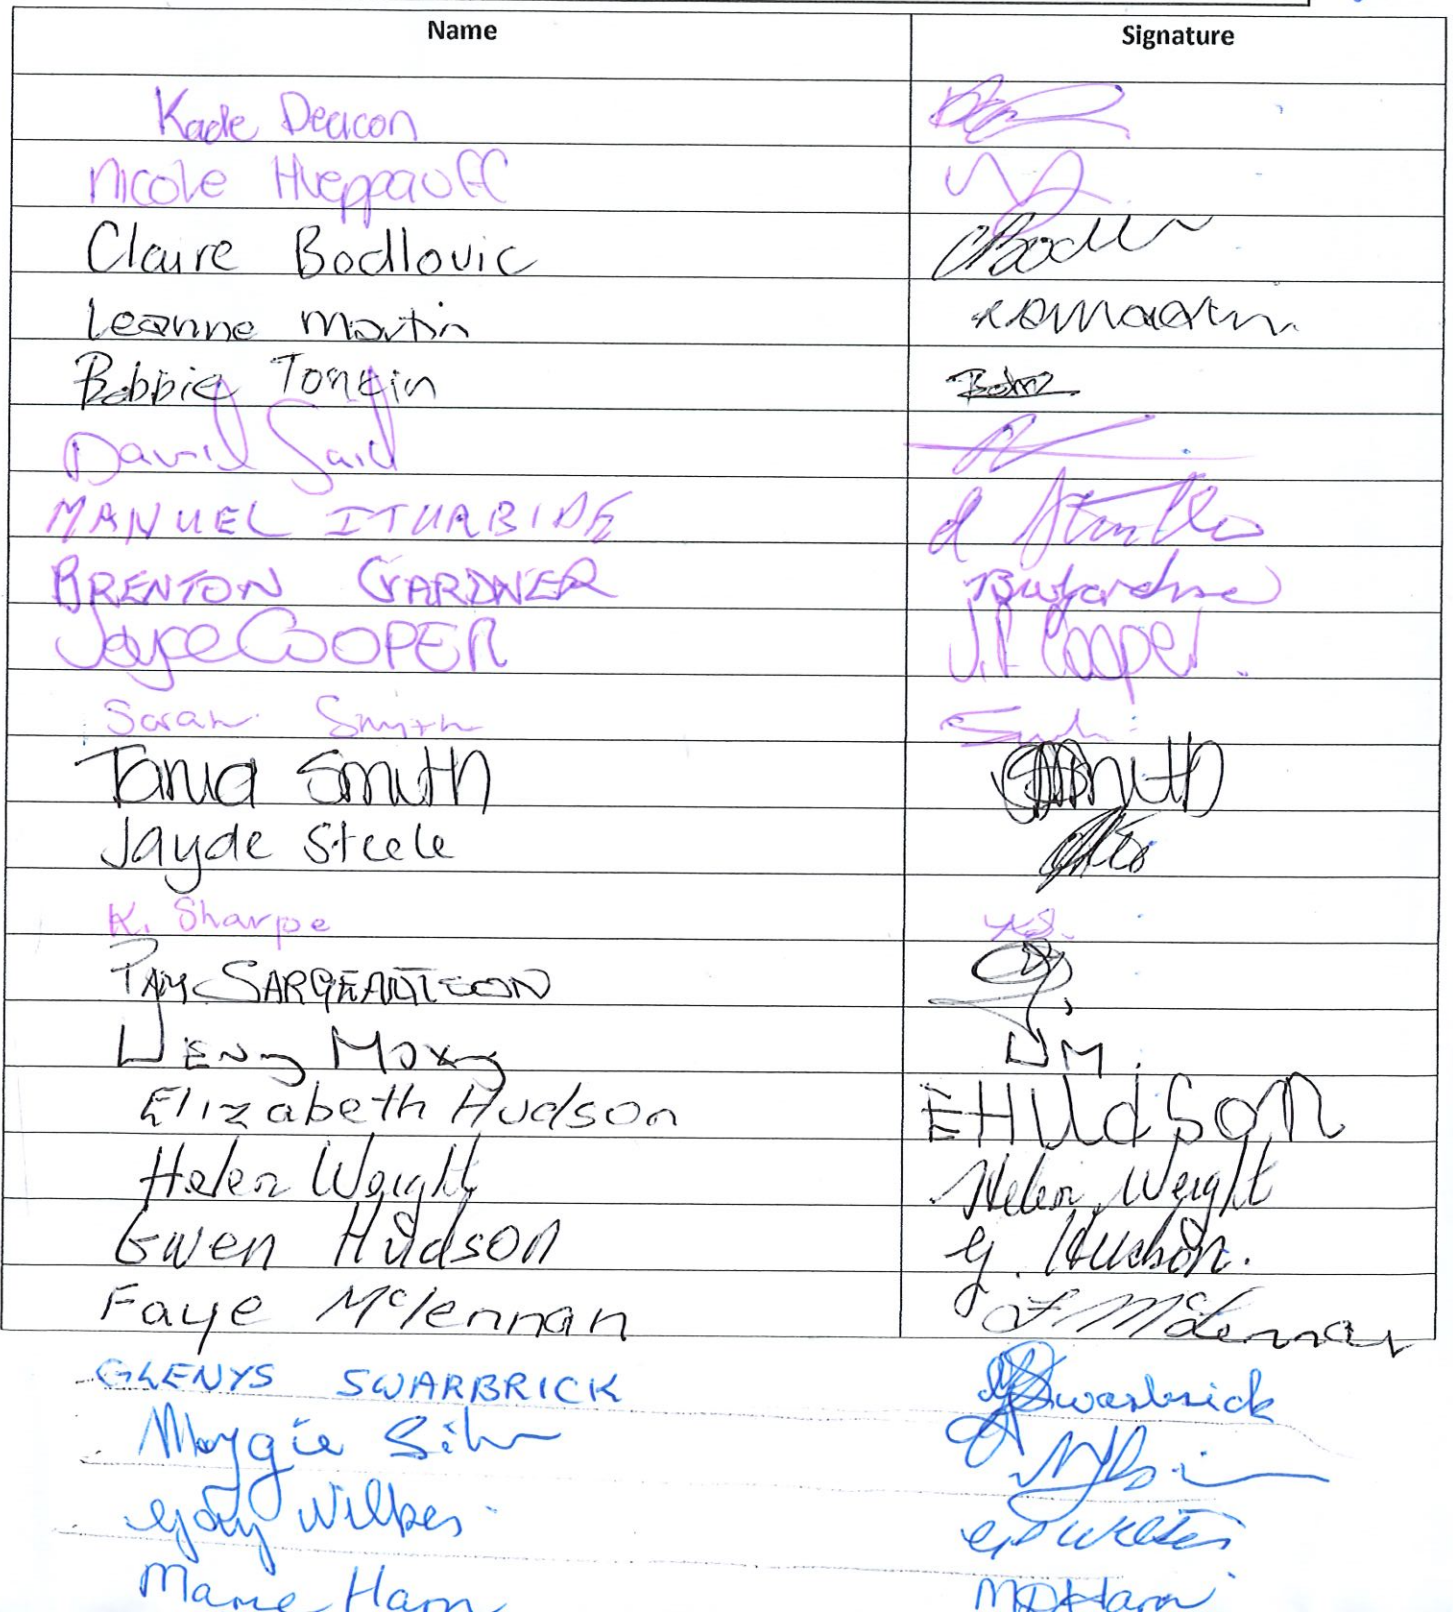 Name Signature
Kade Deacon
Nicole Hueppauff
Claire Bodlovic CBodl
Leanne Martin
Bobbie Tonkin
David Said
MANUEL ITURBIDE
BRENTON GARDNER
Joyce COOPER J.P Cooper.
Sarah Smyth
Tania Smith Smith
Jayde Steele
K. Sharpe KS.
PAM SARGEANTSON
WENDY MOXEY WM.
Elizabeth Hudson EHudson
Helen Weight Helen Weight
Gwen Hudson G. Hudson.
Faye McLennan F McLennan
GLENYS SWARBRICK GSwarbrick
Maggie
Gay Wilkes
Marie Ham MDHam